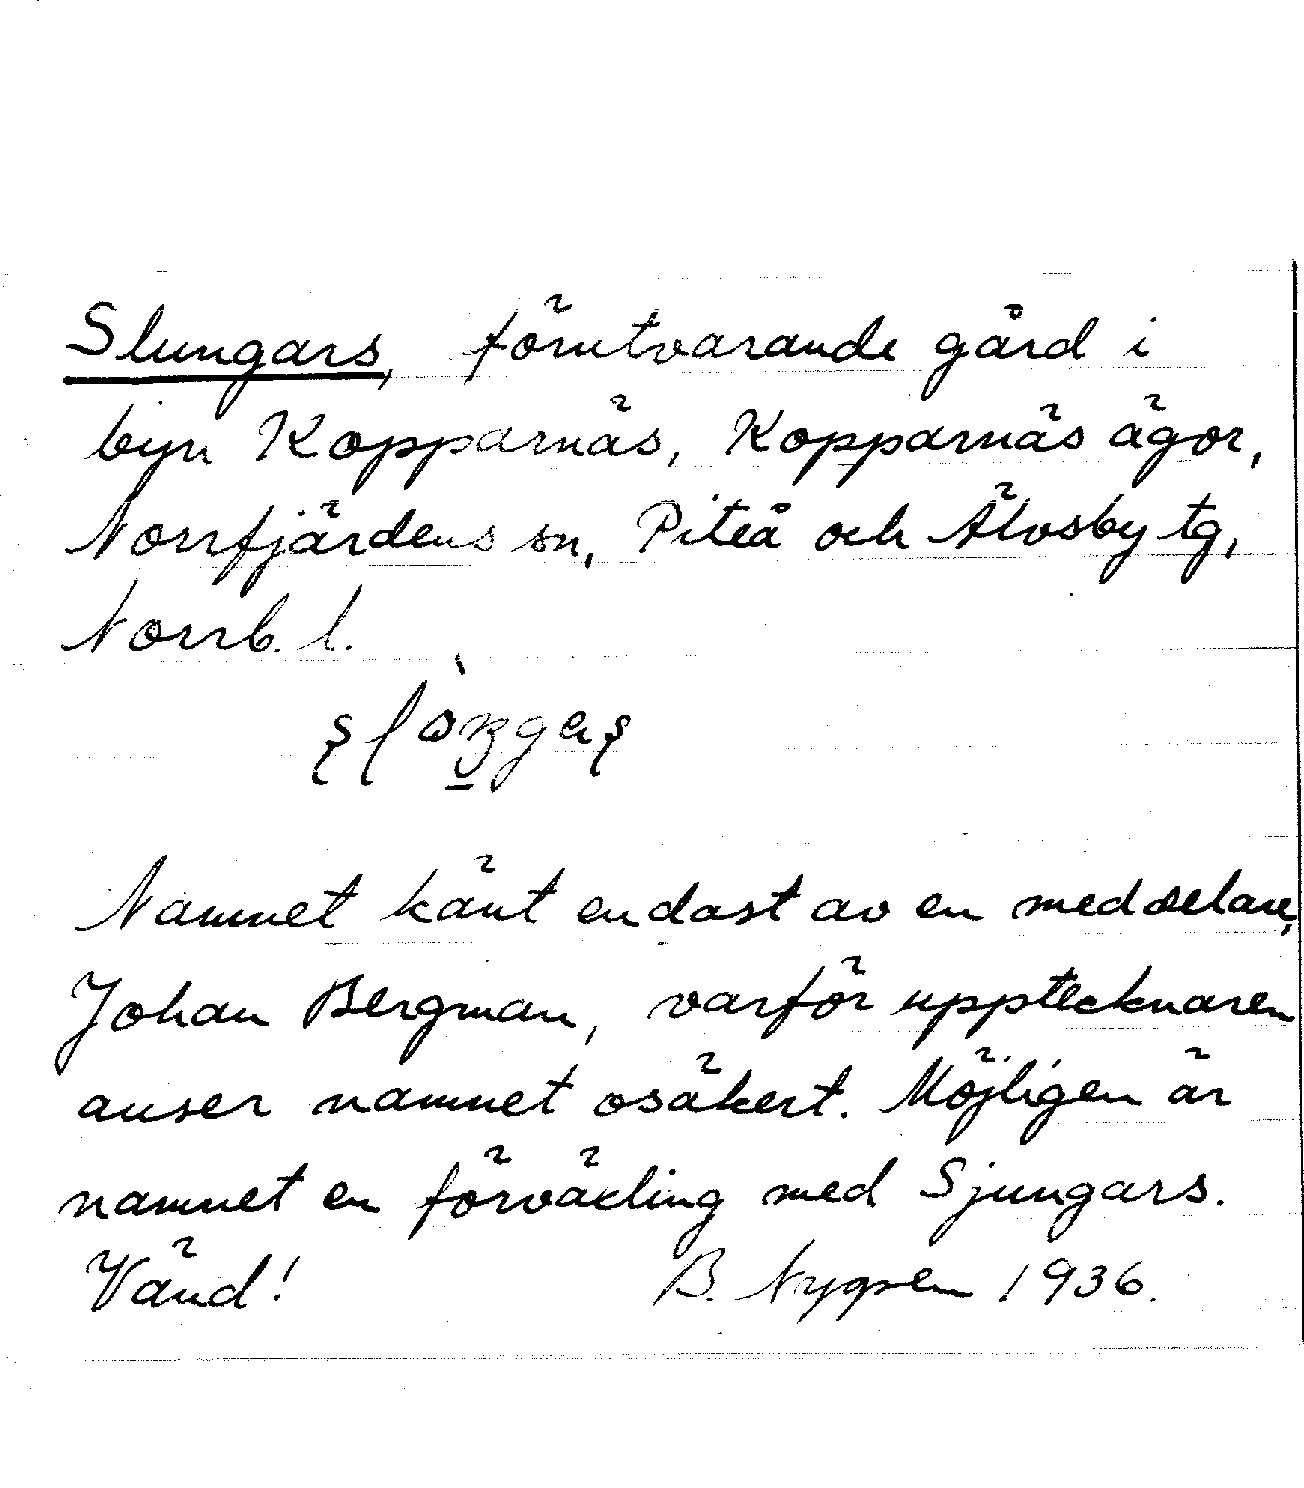 Slungars, förutvarande gård i
byn Kopparnäs, Kopparnäs ägor,
Norrfjärdens sn, Piteå och Älvsby tg,
Norrb. l.
Namnet känt endast av en meddelare,
Johan Bergman, varför upptecknaren
anser namnet osäkert. Möjligen är
namnet en förväxling med Sjungars.
Vänd! B. Nygren 1936.